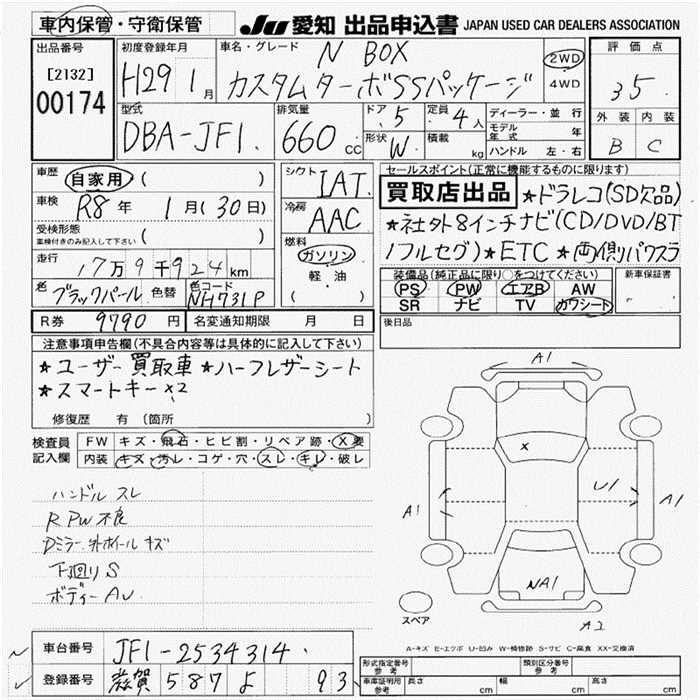 車内保管・守衛保管
JU 愛知 出品申込書 JAPAN USED CAR DEALERS ASSOCIATION
出品番号
[2132]
00174
初度登録年月
H29 1月
車名・グレード
N BOX
カスタムターボSSパッケージ
2WD
4WD
評価点
3.5
外装 内装
B C
型式
DBA-JF1
排気量
660 CC
ドア 5
形状 W
定員 4人
積載 kg
ディーラー・並行
モデル年式 年
ハンドル 左・右
車歴 自家用 ( )
車検 R8年 1月(30日)
受検形態
車検付きのみ記入して下さい ( )
走行 17万9千924km
色 ブラックパール 色替 色コード NH731P
シフト IAT
冷房 AAC
燃料
ガソリン
軽・油
( )
セールスポイント(正常に機能するものに限ります)
買取店出品 ★ドラレコ(SD欠品)
★社外8インチナビ(CD/DVD/BT
/フルセグ)★ETC ★両側パワスラ
装備品(純正品に限り○をつけてください)
PS PW エアB AW
SR ナビ TV カワシート
新車保証書
R券 9790円 名変通知期限 月 日
後日品
注意事項申告欄(不具合内容等は具体的に記入して下さい)
★ユーザー買取車 ★ハーフレザーシート
★スマートキー×2
修復歴 有(箇所 )
検査員
記入欄
FW キズ・飛石・ヒビ割・リペア跡・X要
内装 キズ・汚レ・コゲ・穴・スレ・キレ・破レ
ハンドルスレ
R PW不良
Dミラー.外ホイールキズ
下廻りS
ボディーAU
A1
X
A1
U1
A1
NA1
A2
スペア
A-キズ E-エクボ U-凹み W-補修跡 S-サビ C-腐食 XX-交換済
車台番号 JF1-2534314
登録番号 滋賀 587 よ 93
形式指定番号
参考
類別区分番号
参考
車庫証明用
参考
長さ cm 幅 cm 高さ cm